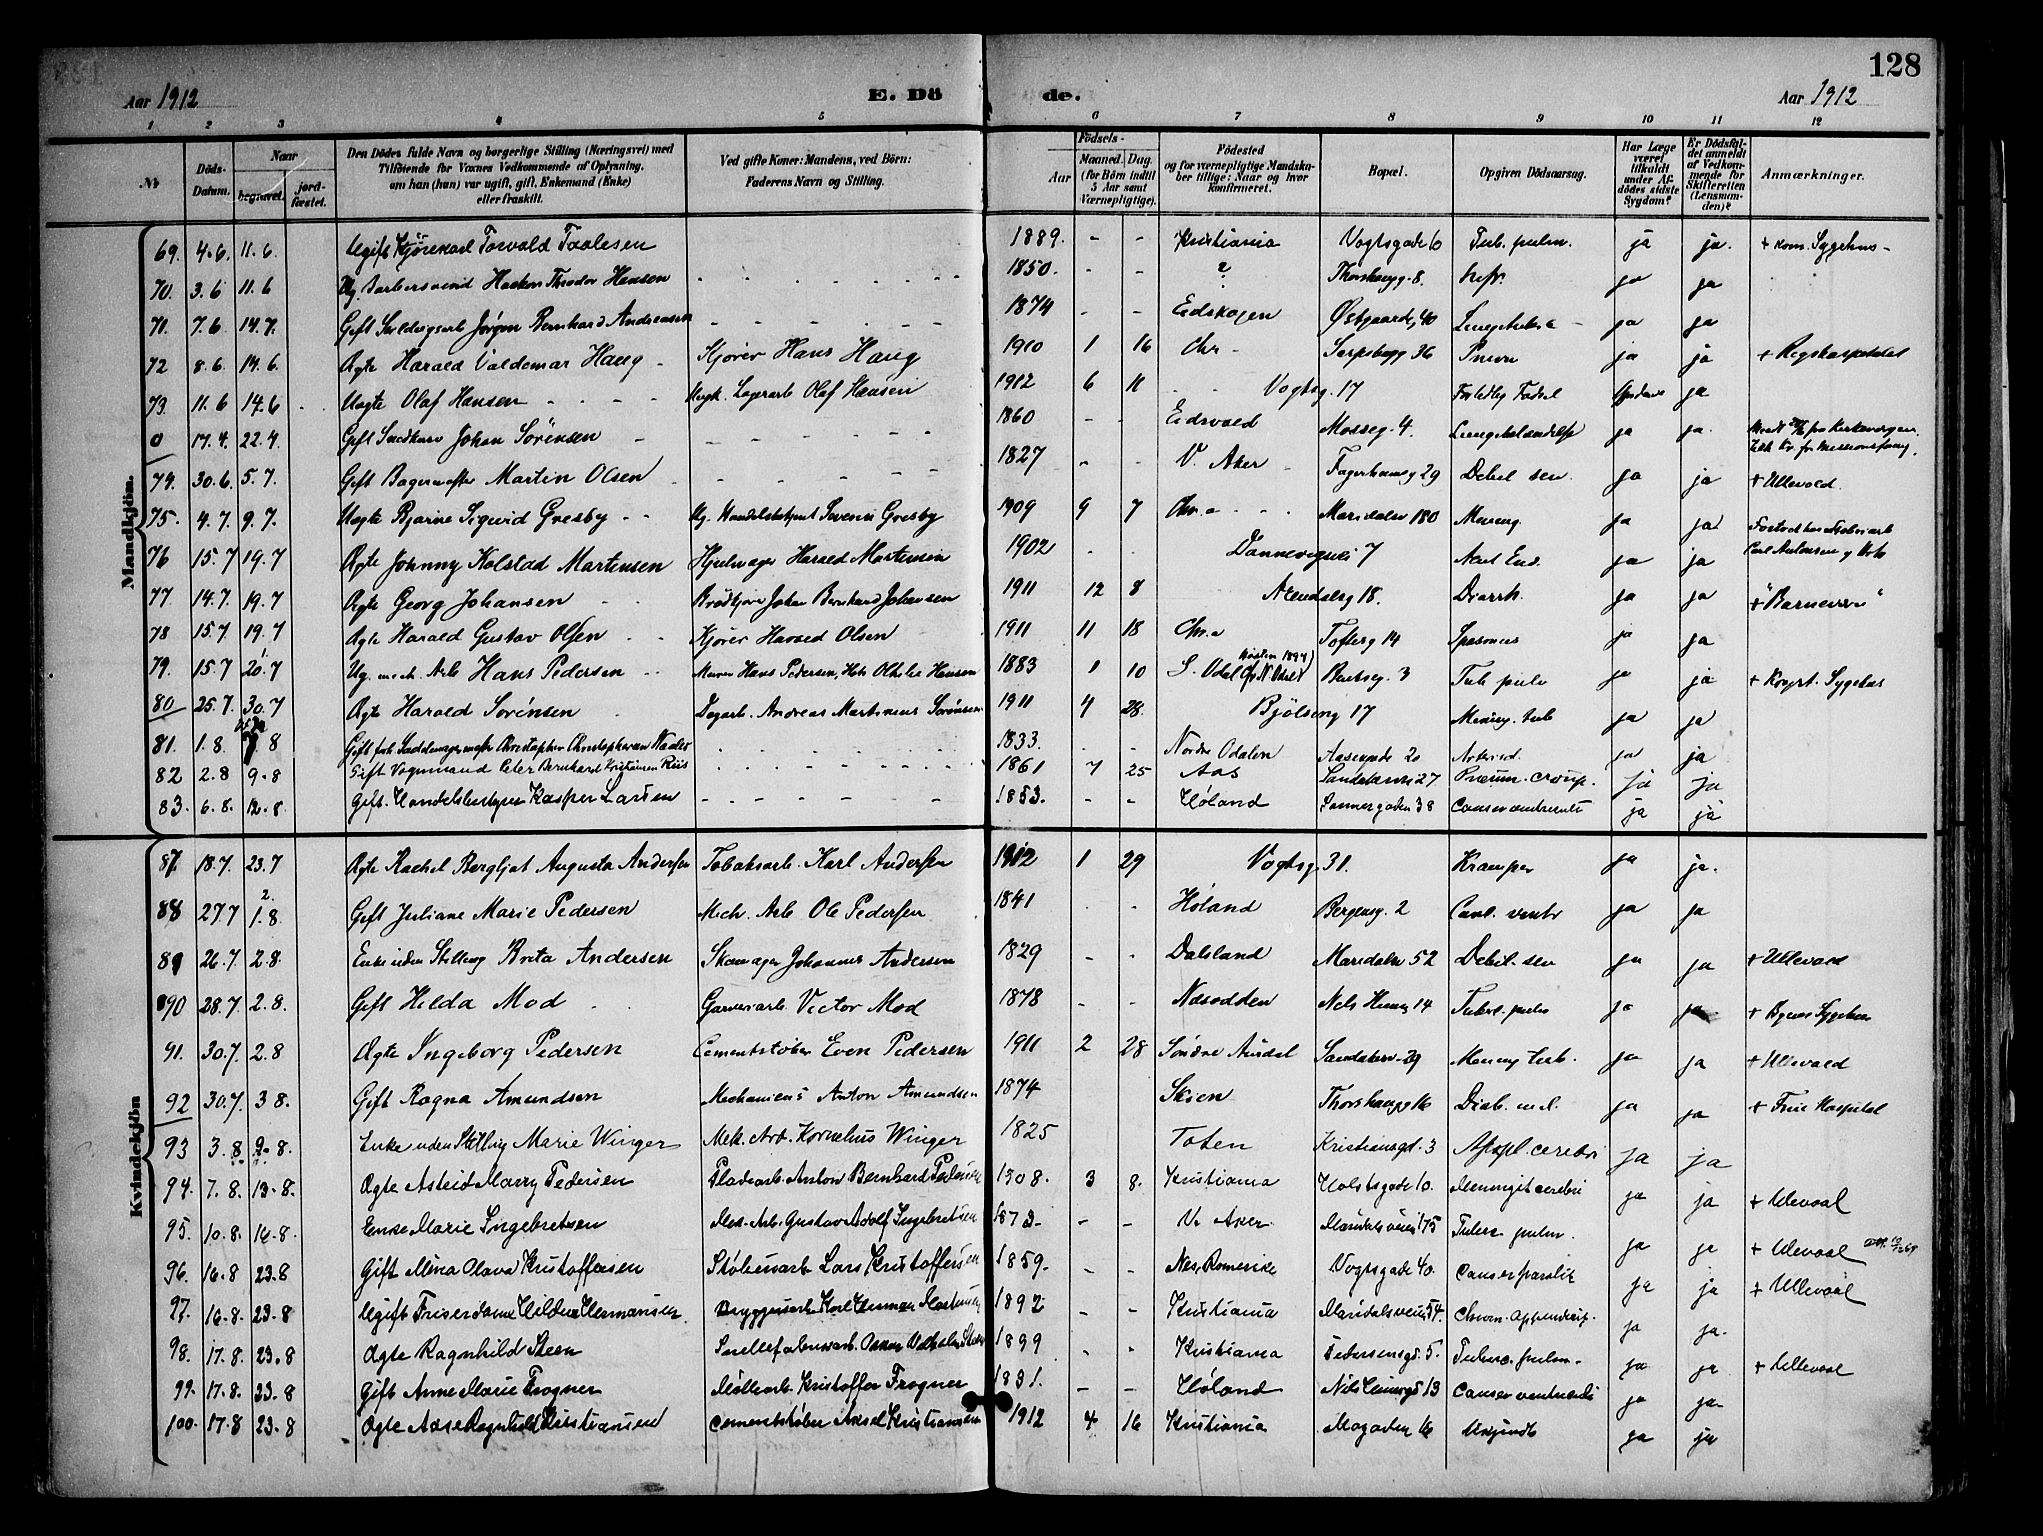 128
Aar 1912
E. Döde.
Aar 1912
1 2 3 4 5 6 7 8 9 10 11 12
№
Döds-Datum.
Naar
begravet.
jord-fæstet.
Den Dödes fulde Navn og borgerlige Stilling (Næringsvei) med
Tilföiende for Voxnes Vedkommende af Oplysning,
om han (hun) var ugift, gift, Enkemand (Enke)
eller fraskilt.
Ved gifte Koner: Mandens, ved Börn:
Faderens Navn og Stilling.
Födsels-
Aar
Maaned. Dag.
(for Börn indtil
5 Aar samt
Værnepligtige).
Födested
og for værnepligtige Mandska-
ber tillige: Naar og hvor
konfirmeret.
Bopæl.
Opgiven Dödsaarsag.
Har Læge
været
tilkaldt
under Af-
dödes sidste
Sygdom?
Er Dödsfal-
det anmeldt
af Vedkom-
mende for
Skifteretten
(Lensman-
den)?
Anmærkninger.
Mandkjöm.
69. 4.6. 11.6. Ugift Kjørekarl Torvald Taalesen 1889. - - Kristiania Vogtsgade 6 Tub. pulm. ja ja. + Kom. Sygehus -
70. 3.6 11.6 Ug. Barbersvend Haakon Theodor Hansen 1850. - - ? Thorshaugg. 8. Nefr. ja ja
71. 7.6. 14.7. Gift Jørgen Bernhard Andreassen 1874 - - Eidskogen Østgaardg 40 ja ja
72 8.6. 14.6. Ægte Harald Valdemar Haug - Kjører Hans Haug 1910 1 16 Chr - Sarpsborgg 36 Pneum ja ja + Rigshospitalet
73. 11.6 14.6 Uægte Olaf Hansen Ungk. Lagerarb Olaf Hansen 1912 6 11 Vogtsg. 17 Fødsel ja
0 17.4. 22.4. Gift Johan Sörensen 1860 - - Eidsvold Mosseg. 4. ja ja.
74. 30.6. 5.7. Gift Bagermester Martin Olsen 1827 V. Aker Fagerheimg 29 Debil sen. ja ja + Ullevold.
75. 4.7. 9.7. Uægte Bjarne Sigurd Gresby Ug. Handelsbetjent Severin Gresby 1909 9 7 Chr.a Maridalsv 180 Mening. ja ja
76 15.7 19.7 Ægte Johnny Kolstad Martinsen Hjulmager Harald Martinsen 1902 Dannevigsvei 7 ja ja
77 14.7. 19.7 Ægte Georg Johansen Brødkjører Johan Bernhard Johansen 1911 12 8 Arendalsg 18. Diarrh. ja ja + "Barnehjem"
78 15.7. 19.7 Ægte Harald Gustav Olsen Kjører Harald Olsen 1911 11 18 Chr.a Tofteg 14 Spasmus ja ja
79. 15.7 20.7 Ug. mek. Arb Hans Pedersen Murer Hans Pedersen, Hansen 1883 1 10 S. Odal N. Odal 1897 Bentseg. 3 Tub pulm ja ja + Kropst. Sygehus
80 25.7. 30.7 Ægte Harald Sörensen Dagarb. Andreas Martinius Sörensen 1911 4 28. Bjölseng 17 Mening. tub ja ja
81. 1.8. 7.8 Gift Sadelmagermester Christopher Christophersen 1833. - - Nordre Odalen Aasengade 20 ja ja
82 2.8 9.8 Gift Vognmand Peter Bernhard Kristiansen Riis 1861 7 25 Aas Sandakerveien 27 Pneum. croup. ja ja
83. 6.8. 12.8 Gift. Handelsbestyrer Kasper Larsen 1853. - - Høland Sannergaden 38 Cancer ventriculi ja ja
Kvindekjöm
87. 18.7. 23.7 Ægte Rachel Bergljot Augusta Andersen Tobaksarb. Karl Andersen 1912 1 29 Vogtsg. 31. Kramper ja ja.
88 27.7 2. 1.8. Gift Juliane Marie Pedersen Mech. Arb Ole Pedersen 1841 Høland Bergensg. 2 Canc. ventr ja ja
89 26.7. 2.8. Enke uden Stilling Brita Andersen Skomager Johannes Andersen 1829 - - Dalsland Maridalsv 52 Debil. sen ja ja + Ullevold
90 28.7. 2.8. Gift Hilda Mod Garveriarb. Victor Mod 1878 - - Næsodden Nels Hensg 14 Tuberc. pulm ja ja + Byens Sygehus
91. 30.7. 2.8 Ægte Ingeborg Pedersen Cementstøber Even Pedersen 1911 2 28 Söndre Aurdal Sandakerv. 29 Mening tub. ja ja + Ullevold
92 30.7. 3.8. Gift Ragna Amundsen Mechanicus Anton Amundsen 1874 Skien Thorshaugg 16 Diab. mel. ja ja + Frue Hospital
93 3.8 9.8. Enke uden Stilling Marie Winger Mek. Arb. Kornelius Winger 1825 Toten Kristiansgd. 3 Apopl. cerebri ja ja
94. 7.8. 13.8. Ægte Astrid Marry Pedersen Pladearb. Anton Bernhard Pedersen 1908. 3 8. Kristiania Holstsgade 10. Meningit cerebri ja ja + Ullevaal
95. 10.8. 16.8. Enke Marie Ingebretsen Mek. Arb. Gustav Adolf Ingebretsen 1873 - - V. Aker Maridalsveien 175 Tuberc. pulm. ja ja + Ullevaal
96. 16.8 23.8 Gift Mina Olava Kristoffersen Støberiarb Lars Kristoffersen 1859. - - Nes, Romerike Vogtsgade 40. Cancer ja ja + Ullevaal
97. 16.8. 23.8 Ugift Hildur Hermansen Bryggeriarb. Karl Herman 1892 - - Kristiania Maridalsveien 54. Chron. Appendicit. ja ja.
98. 17.8. 23.8 Ægte Ragnhild Steen 1899 Kristiania Pedersensgd. 5. Tuberc. pulm. ja ja + Ullevaal
99. 17.8. 23.8 Gift Anne Marie Frogner Møllearb. Kristoffer Frogner 1831. - - Høland Nils Huusgd 13 Cancer ventriculi ja ja
100. 17.8 23.8 Ægte Aase Ragnhild Kristiansen Cementstøber Aksel Kristiansen 1912 4 16 Kristiania Mogaden 16 ja ja